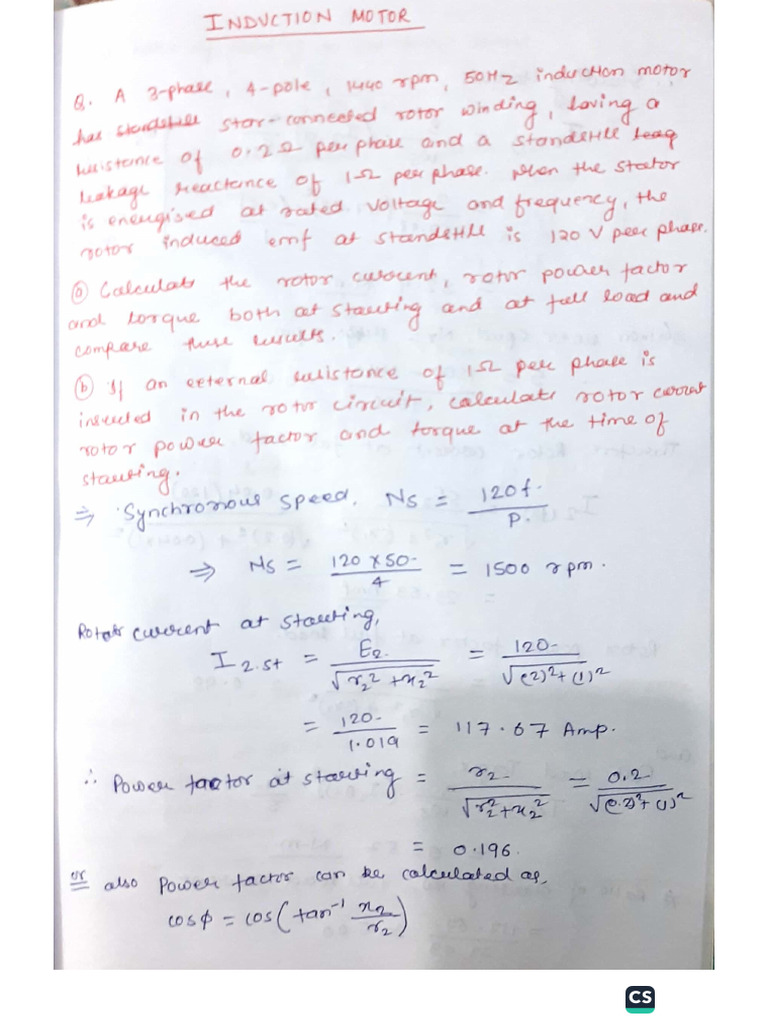 INDUCTION MOTOR
Q. A 3-phase, 4-pole, 1440 rpm, 50Hz induction motor
has standstill star-connected rotor winding, having a
resistance of 0.2Ω per phase and a standstill leag
leakage reactance of 1Ω per phase. When the stator
is energised at rated voltage and frequency, the
rotor induced emf at standstill is 120 V per phase.
ⓐ Calculate the rotor current, rotor power factor
and torque both at starting and at full load and
compare these results.
ⓑ If an external resistance of 1Ω per phase is
inserted in the rotor circuit, calculate rotor current
rotor power factor and torque at the time of
starting.
⇒ Synchronous speed, Ns = 120f / P.
⇒ Ns = 120 × 50 / 4 = 1500 rpm.
Rotor current at starting,
I2.st = E2 / √(r2² + x2²) = 120 / √((.2)² + (1)²)
= 120 / 1.019 = 117.67 Amp.
∴ Power factor at starting = r2 / √(r2² + x2²) = 0.2 / √((0.2)² + (1)²)
= 0.196.
or also Power factor can be calculated as,
cosφ = cos(tan⁻¹ x2/r2)
CS